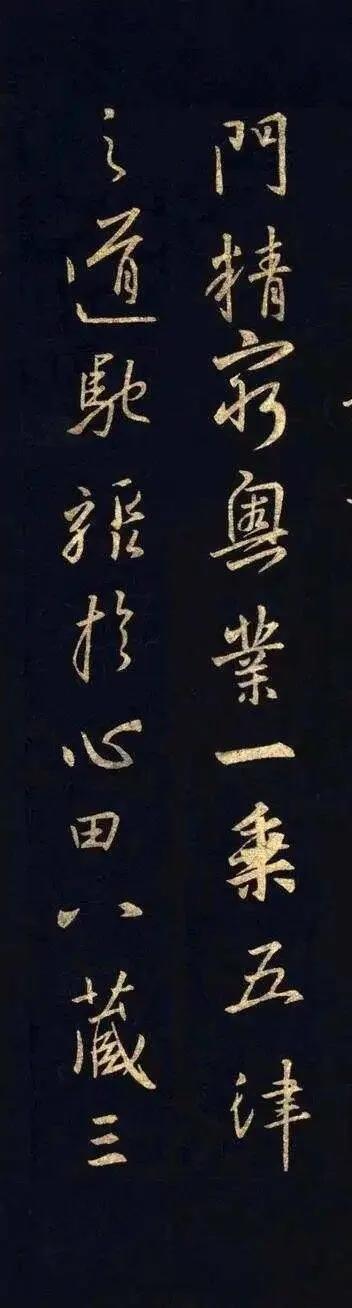 門精窮奧業一乘五律
之道馳驟於心田八藏三